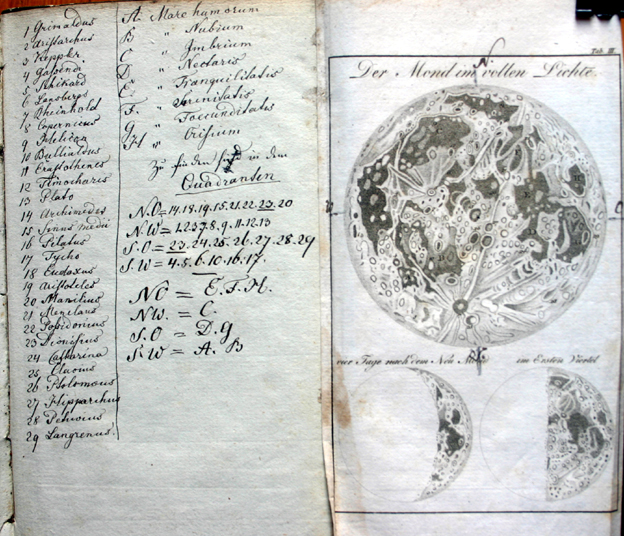 1 Grimaldus
2 Aristarchus
3 Keppler
4 Gassendi
5 Schikard
6 Lansberg
7 Rheinhold
8 Copernicus
9 Helicon
10 Bullialdus
11 Erastothenes
12 Timocharis
13 Plato
14 Archimedes
15 Sinus medii
16 Pitatus
17 Tycho
18 Eudoxus
19 Aristoteles
20 Manilius
21 Menelaus
22 Possidonius
23 Dionisius
24 Catharina
25 Clavius
26 Ptolomaeus
27 Hipparchus
28 Petavius
29 Langrenus.
A. Mare humorum
B " Nubium
C " Imbrium
D " Nectaris
E " Tranquilitatis
F. " Serenitatis
G " Foecunditatis
H " Crisium
Zu finden sind in dem
Quadranten
N.O = 14.18.19.15.21.22.23.20
N.W = 1.2.3.7.8.9.11.12.13
S.O = 23.24.25.26.27.28.29
S.W = 4.5.6.10.16.17.
NO = E.F.H.
NW. = C.
S.O = D.G
S.W = A. B
Tab. III
N
Der Mond im vollen Lichte.
O
S
vier Tage nach dem Neu Mond
im Ersten Viertel